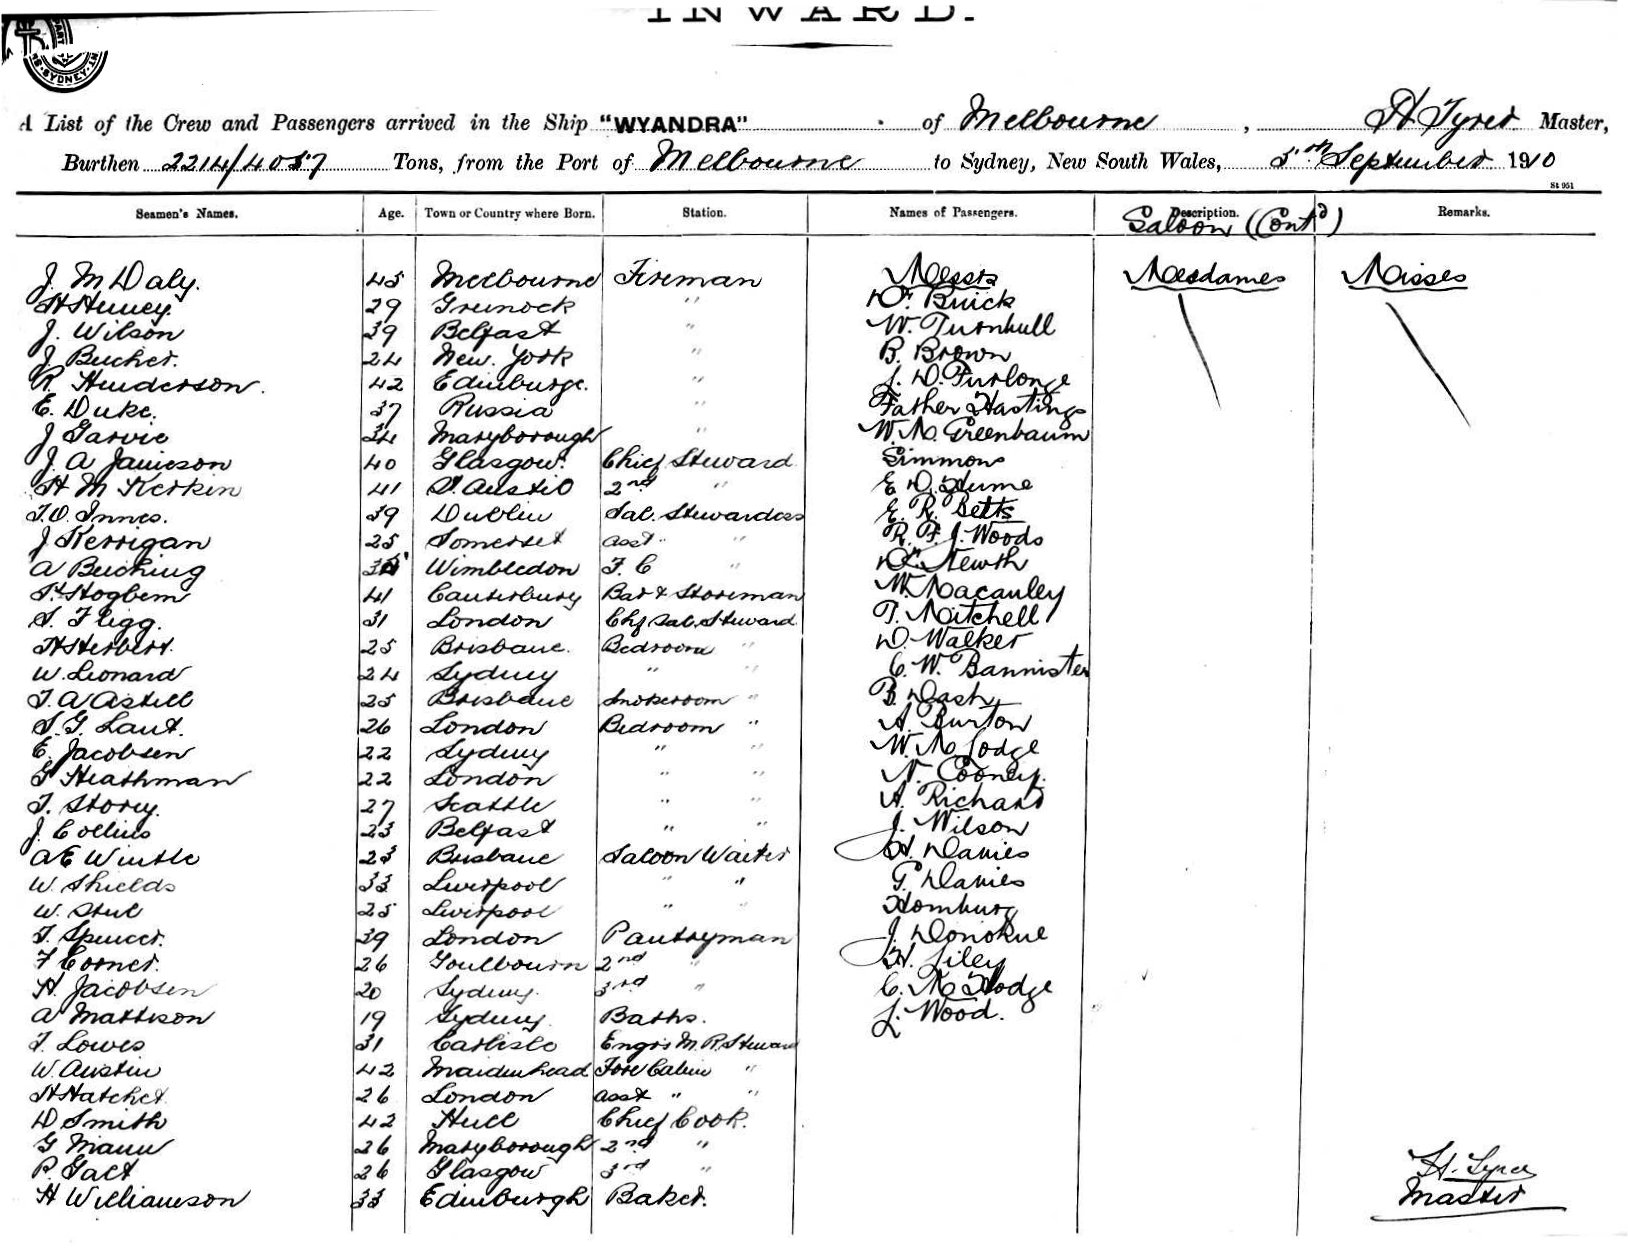 INWARD.
SYDNEY
A List of the Crew and Passengers arrived in the Ship "WYANDRA" of Melbourne, H Tyrer Master,
Burthen 2214/4057 Tons, from the Port of Melbourne to Sydney, New South Wales, 5th September 1910
St 951
Seamen's Names. Age. Town or Country where Born. Station. Names of Passengers. Description. Remarks.
Saloon (Contd)
J. M Daly. 45 Melbourne Fireman Messrs Mesdames Misses
H Huney. 29 Greenock " Dr. Buick
J. Wilson 39 Belfast " W. Turnbull
J Bucher. 24 New. York " B. Brown
R. Henderson. 42 Edinburge. " J. D. Furlonge
E. Duke. 37 Russia " Father Hastings
J Garvie 34 Maryborough " W. M. Greenbaum
J. A Jamieson 40 Glasgow. Chief Steward Simmons
H M Kerkin 41 St. Austio 2nd " E D. Hume
T. O. Innes. 39 Dublin Sal. Stewardess E. R. Betts
J Kerrigan 25 Somerset asst " R. F. J. Woods
A Buching Wimbledon F. C " Dr. Newth
Hogbem 41 Canterbury Bar & Storeman W. Macauley
S. Fligg. 31 London Chf Sal. Steward T. Mitchell
H Herbert. 25 Brisbane. Bedroom " D. Walker
W. Leonard 24 Sydney " " C. W. Bannister
T. A Astell 25 Brisbane Smokeroom " B Dash
S. G. Laut. 26 London Bedroom " A. Burton
E. Jacobsen 22 Sydney " " W. M Lodge
G Heathman 22 London " " N. Cooney.
T. Storey. 27 Seattle " " A. Richard
J. Collins 23 Belfast " " J. Wilson
A E Wintle 23 Brisbane Saloon Waiter H. Davies
W. Shields 33 Liverpool " " G. Davies
W. Steel 25 Liverpool " " Homburg
T. Spencer. 39 London Pantryman J. Donohue
F Corner. 26 Goulbourn 2nd " H. Liley
H. Jacobsen 20 Sydney. 3rd " C. M Hodge
A Mattison 19 Sydney Baths. J. Wood.
T. Lowes 31 Carlisle Engrs M. R. Steward
W. Austin 42 Maidenhead Fore Cabin "
H Hatchet 26 London asst " "
D Smith 42 Hull Chief Cook.
G Mann 26 Maryborough 2nd "
P. Galt 26 Glasgow 3rd "
H Williamson 33 Edinburgh Baker.
H. Tyrer
Master